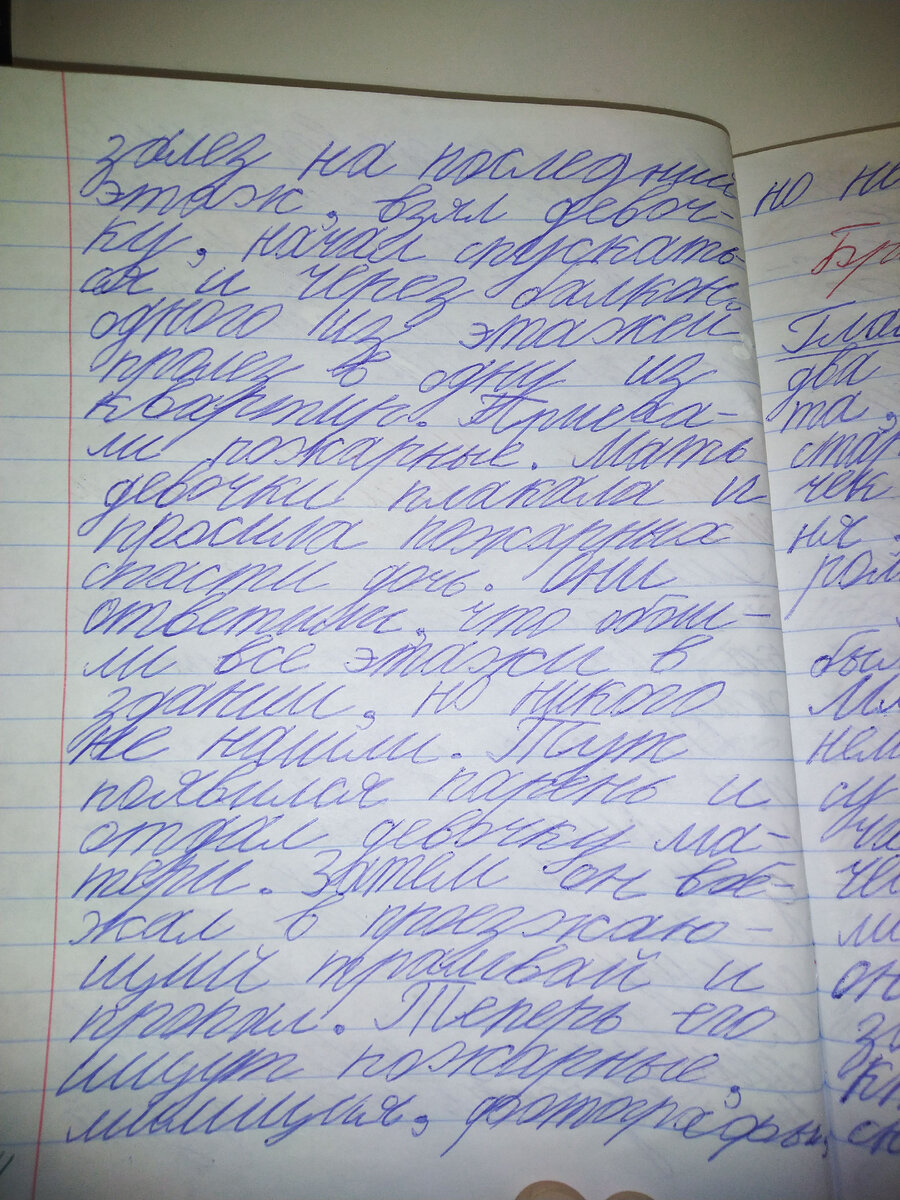 залез на последний
этаж, взял девоч-
ку, начал спускать-
ся и через балкон
одного из этажей
пролез в одну из
квартир. Приеха-
ли пожарные. Мать
девочки плакала и
просила пожарных
спасти дочь. Они
ответили, что обош-
ли все этажи в
здании, но никого
не нашли. Тут
появился парень и
отдал девочку ма-
тери. Затем он вбе-
жал в проезжаю-
щий трамвай и
пропал. Теперь его
ищут пожарные,
милиция, фотографы,
но не
Бр
Гла
два
та,
стар
чек
ня.
ром
был
нем
су
че
ми
он
зн
кн
сн